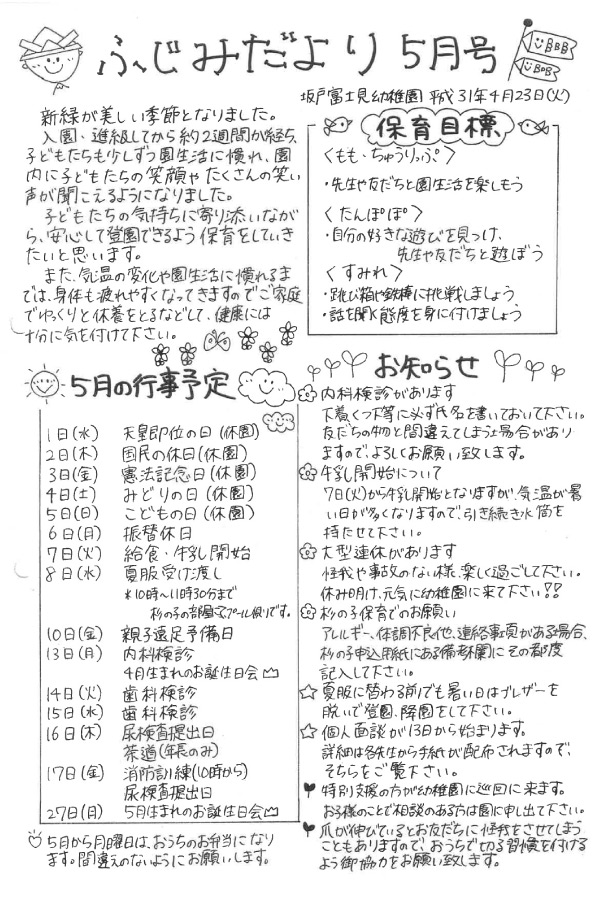 ふじみだより 5月号
BBB
BBB
坂戸富士見幼稚園 平成31年4月23日(火)
新緑が美しい季節となりました。
入園・進級してから約2週間が経ち、
子どもたちも少しずつ園生活に慣れ、園
内に子どもたちの笑顔やたくさんの笑い
声が聞こえるようになりました。
子どもたちの気持ちに寄り添いなが
ら、安心して登園できるよう保育をしていき
たいと思います。
また、気温の変化や園生活に慣れるま
では、身体も疲れやすくなってきますのでご家庭
でゆっくりと休養をとるなどして、健康には
十分に気を付けて下さい。
保育目標
〈もも・ちゅうりっぷ〉
・先生や友だちと園生活を楽しもう
〈たんぽぽ〉
・自分の好きな遊びを見つけ、
先生や友だちと遊ぼう
〈すみれ〉
・跳び箱や鉄棒に挑戦しましょう
・話を聞く態度を身に付けましょう
5月の行事予定
1日(水) 天皇即位の日(休園)
2日(木) 国民の休日(休園)
3日(金) 憲法記念日(休園)
4日(土) みどりの日(休園)
5日(日) こどもの日(休園)
6日(月) 振替休日
7日(火) 給食・牛乳開始
8日(水) 夏服受け渡し
*10時〜11時30分まで
杉の子の部屋でプール側りです。
10日(金) 親子遠足予備日
13日(月) 内科検診
4月生まれのお誕生日会
14日(火) 歯科検診
15日(水) 歯科検診
16日(木) 尿検査提出日
茶道(年長のみ)
17日(金) 消防訓練(10時から)
尿検査提出日
27日(月) 5月生まれのお誕生日会
5月から月曜日は、おうちのお弁当になり
ます。間違えのないようにお願いします。
お知らせ
内科検診があります
下着、くつ下等に必ず氏名を書いておいて下さい。
友だちの物と間違えてしまう場合があり
ますので、よろしくお願い致します。
牛乳開始について
7日(火)から牛乳開始となりますが、気温が暑
い日が多くなりますので、引き続き水筒を
持たせて下さい。
大型連休があります
怪我や事故のない様、楽しく過ごして下さい。
休み明け、元気に幼稚園に来て下さい!!
杉の子保育でのお願い
アレルギー、体調不良他、連絡事項がある場合、
杉の子申込用紙にある備考欄にその都度
記入して下さい。
夏服に替わる前でも暑い日はブレザーを
脱いで登園、降園をして下さい。
個人面談が13日から始まります。
詳細は各先生から手紙が配布されますので、
そちらをご覧下さい。
特別支援の方が幼稚園に巡回に来ます。
お子様のことで相談のある方は園に申し出て下さい。
爪が伸びているとお友だちに怪我をさせてしまう
こともありますので、おうちで切る習慣を付ける
よう御協力をお願い致します。